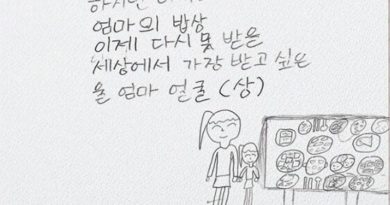 하지만
엄마의 밥상
이제 다시 못 받을
세상에서 가장 받고 싶은
울 엄마 얼굴 (상)